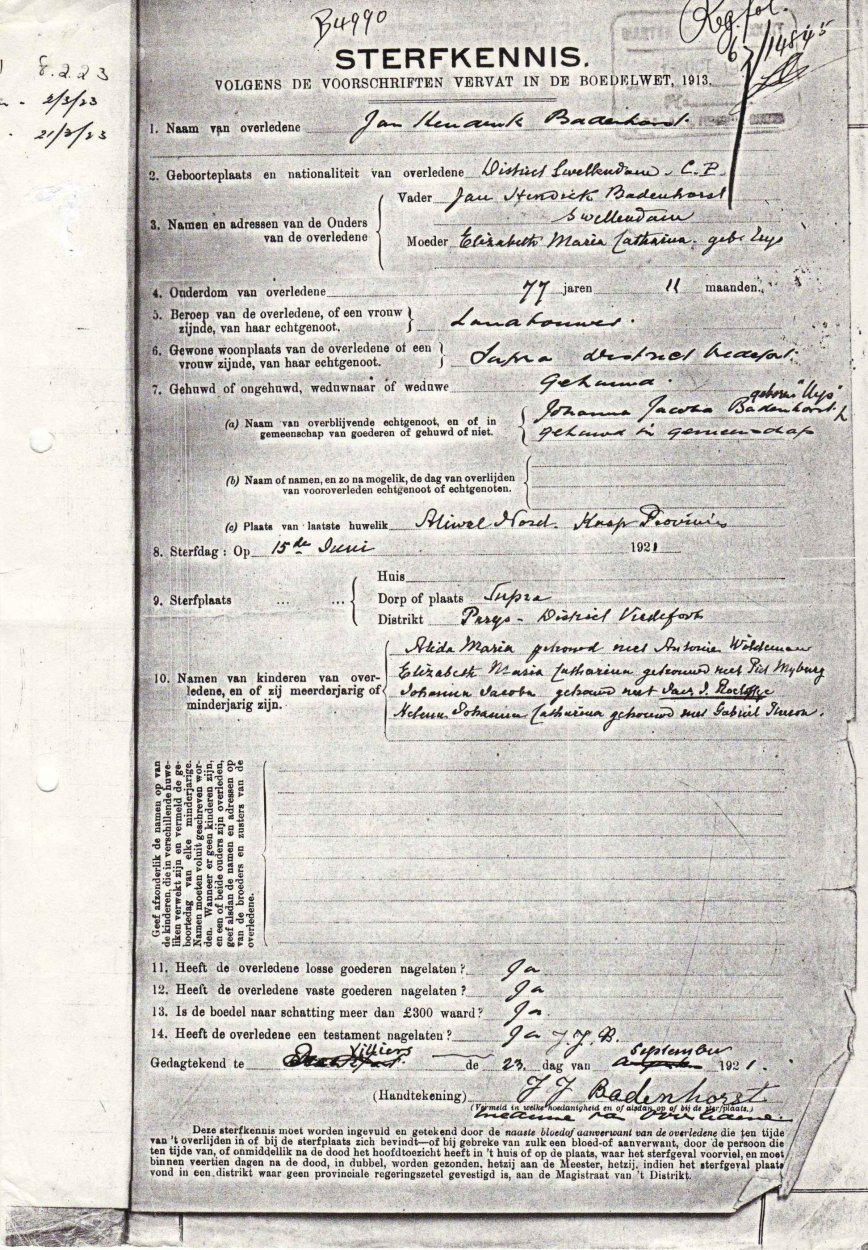 B4990
8.2.23
2/3/23
21/3/23
STERFKENNIS.
VOLGENS DE VOORSCHRIFTEN VERVAT IN DE BOEDELWET, 1913.
1. Naam van overledene Jan Hendrik Badenhorst.
2. Geboorteplaats en nationaliteit van overledene District Swellendam. C.P.
3. Namen en adressen van de Ouders van de overledene
Vader Jan Hendrick Badenhorst
Swellendam
Moeder Elizabeth Maria Catharina. geb. Uys
4. Ouderdom van overledene 77 jaren 11 maanden.
5. Beroep van de overledene, of een vrouw
zijnde, van haar echtgenoot. Landbouwer.
6. Gewone woonplaats van de overledene of een
vrouw zijnde, van haar echtgenoot. Supra District Vredefort
7. Gehuwd of ongehuwd, weduwnaar of weduwe Gehuwd.
(a) Naam van overblijvende echtgenoot, en of in
gemeenschap van goederen of gehuwd of niet.
Johanna Jacoba Badenhorst geboren "Uys"
gehuwd in gemeenschap
(b) Naam of namen, en zo na mogelik, de dag van overlijden
van vooroverleden echtgenoot of echtgenoten.
(c) Plaats van laatste huwelik Aliwal Nord. Kaap Provincie
8. Sterfdag: Op 15de Juni 1921
9. Sterfplaats ... ...
Huis
Dorp of plaats Supra
Distrikt Parys - District Vredefort
10. Namen van kinderen van over-
ledene, en of zij meerderjarig of
minderjarig zijn.
Alida Maria getrouwd met Antonie
Elizabeth Maria Catharina getrouwd met Piet Myburg
Johanna Jacoba getrouwd met
Johanna Catharina getrouwd met Gabriel
Geef afzonderlik de namen op van
de kinderen, die in verschillende huwe-
liken verwekt zijn en vermeld de ge-
boortedag van elke minderjarige.
Namen moeten voluit geschreven wor-
den. Wanneer er geen kinderen zijn,
en een of beide ouders zijn overleden,
geef alsdan de namen en adressen op
van de broeders en zusters van de
overledene.
11. Heeft de overledene losse goederen nagelaten? Ja
12. Heeft de overledene vaste goederen nagelaten? Ja
13. Is de boedel naar schatting meer dan £300 waard? Ja.
14. Heeft de overledene een testament nagelaten? Ja J.J.B.
Gedagtekend te Villiers de 23. dag van September 1921.
(Handtekening) J J Badenhorst
(Vermeld in welke hoedanigheid en of alsdan op of bij de sterfplaats.)
Deze sterfkennis moet worden ingevuld en getekend door de naaste bloedof aanverwant van de overledene die ten tijde
van 't overlijden in of bij de sterfplaats zich bevindt—of bij gebreke van zulk een bloed-of aanverwant, door de persoon die
ten tijde van, of onmiddellik na de dood het hoofdtoezicht heeft in 't huis of op de plaats, waar het sterfgeval voorviel, en moet
binnen veertien dagen na de dood, in dubbel, worden gezonden, hetzij aan de Meester, hetzij, indien het sterfgeval plaats
vond in een distrikt waar geen provinciale regeringszetel gevestigd is, aan de Magistraat van 't Distrikt.